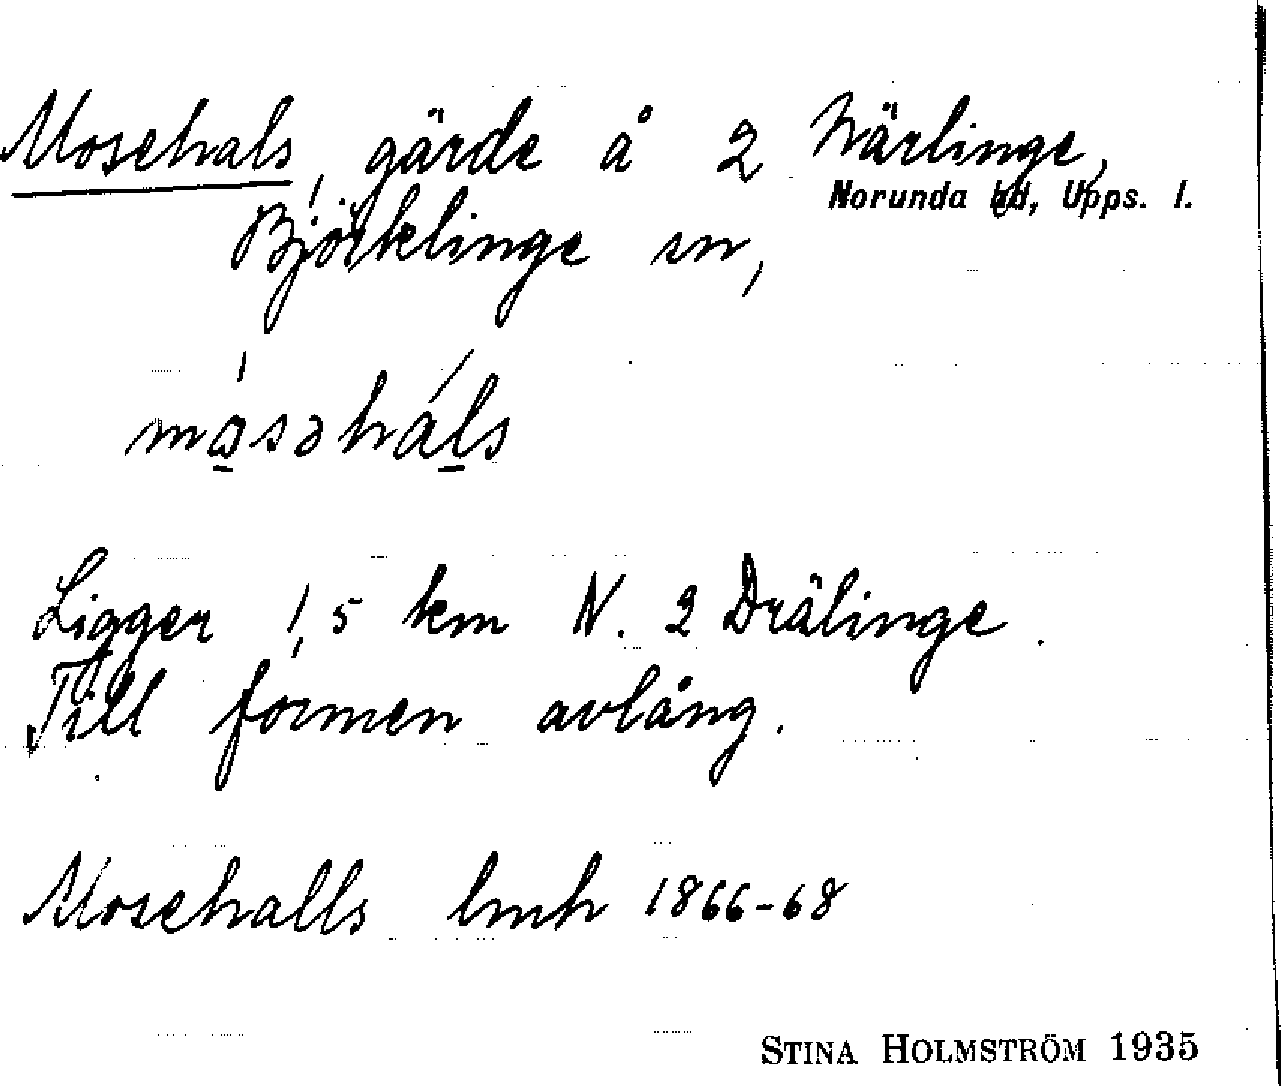 Mosehals, gärde å 2 Närlinge,
Norunda hd, Upps. l.
Björklinge sn,
måsəhals
Ligger 1,5 km N. 2 Drälinge.
Till formen avlång.
Mosehalls lmh 1866-68
STINA HOLMSTRÖM 1935